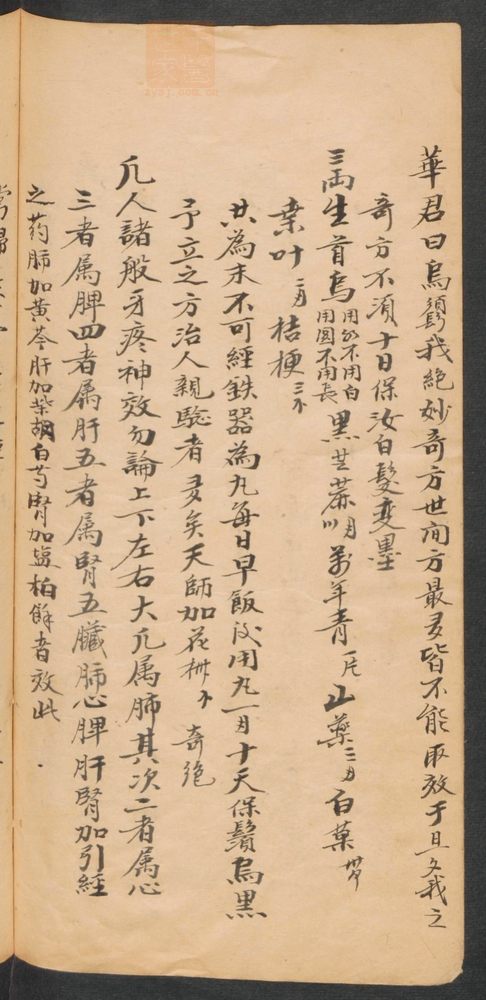 華君曰烏鬚我絕妙奇方世间方最多皆不能取效于旦夕我之
奇方不須十日保汝白髮变墨
三両生首烏用公不用白用圓不用長黒芝蔴萬年青一片山藥三月白菓
桒叶桔梗三个
共為末不可經鉄器為丸每日早飯後用九一月十天保鬚烏黒
予立之方治人親驗者多矣天師加花椒个奇绝
凢人諸般牙疼神效勿論上下左右大凢属肺其次二者属心
三者属脾四者属肝五者属腎五臓肺心脾肝腎加引經
之药肺加黄芩肝加柴胡白芍腎加塩柏餘者效此